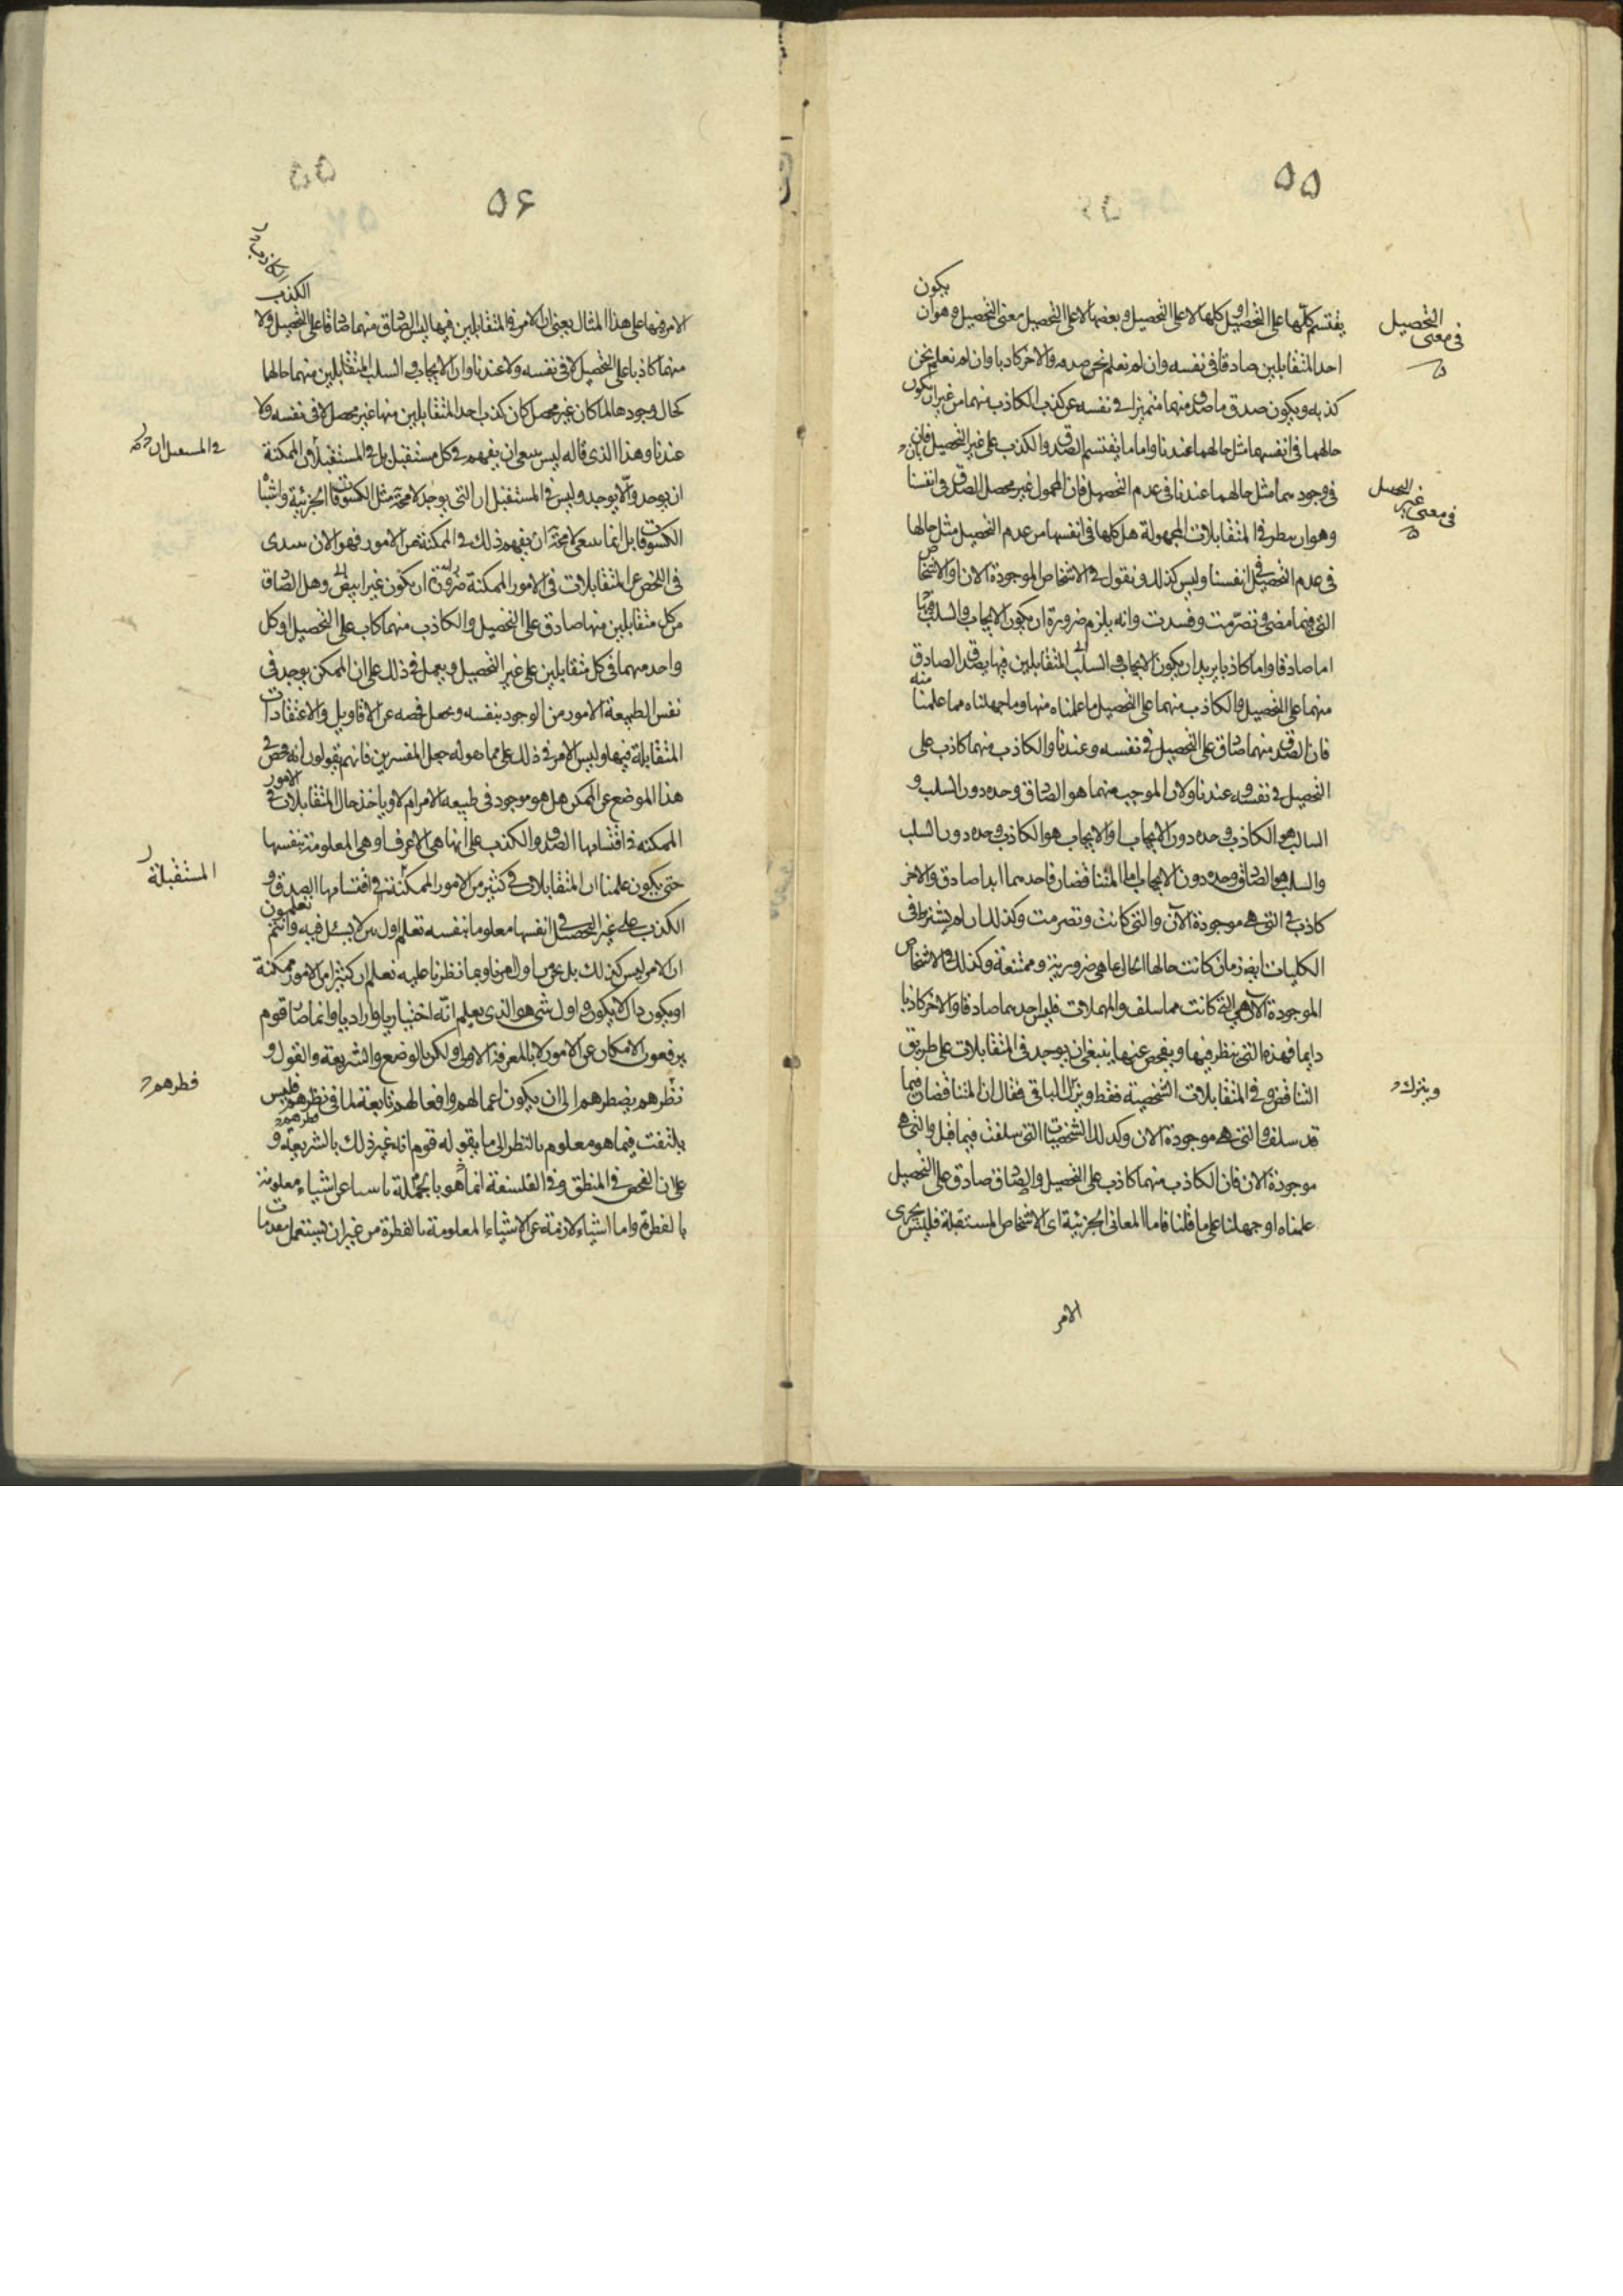 ٥٥
يكون
يقتسم كلّها على التحصيل او كلها لا على التحصيل وبعضها لا على التحصيل معنى التحصيل وهو ان
احد المتقابلين صادقا فى نفسه وان لم نعلم نحن صدقه والاخر كاذبا وان لم نعلم نحن
كذبه ويكون صدق ما صدق منهما متميزا فى نفسه عن كذب الكاذب منهما من غير ان يكون
حالهما فى انفسهما مثل حالهما عندنا واما ما يقتسم الصدق والكذب على غير التحصيل فان
فى وجودهما مثل حالهما عندنا فى عدم التحصيل فان المحمول غير محصل الصدق فى انفسنا
وهو ان ينظر فى المتقابلات المجهولة هل كلها فى انفسها من عدم التحصيل مثل حالها
فى عدم التحصيل فى انفسنا وليس كذلك ونقول فى الاشخاص الموجودة الان او الاشخاص
التى فيما مضى وتصرّمت وفسدت وانه يلزم ضرورة ان يكون الايجاب والسلب فيها
اما صادقا واما كاذبا يريد ان يكون الايجاب والسلب المتقابلين فيها يصدق الصادق
منهما على التحصيل والكاذب منهما على التحصيل ما علمناه منها وما جهلناه مما علمنا منه
فان الصدق منهما صادق على التحصيل فى نفسه وعندنا والكاذب منهما كاذب على
التحصيل فى نفسه وعندنا ولان الموجب منهما هو الصادق وحده دون السلب و
السالب هو الكاذب وحده دون الايجاب او الايجاب هو الكاذب وحده دون السلب
والسلب هو الصادق وحده دون الايجاب اما المتناقضان فاحدهما ابدا صادق والاخر
كاذب فى التى هى موجودة الآن والتى كانت وتصرمت وكذلك ان لم يشترط فى
الكليات ايه زمان كانت حالها الحال ما هى ضرورية وممتنعة وكذلك فى الاشخاص
الموجودة الآن هى التى كانت مما سلف والمهملات فليس احدهما صادقا والاخر كاذبا
دايما فهذه التى ينظر فيها ويفحص عنها ينبغى ان يوجد فى المتقابلات على طريق
التناقض وفى المتقابلات الشخصية فقط ويترك الباقى فقال ان المتناقضان فيما
قد سلف والتى هى موجودة الان وكذلك الشخصيات التى سلفت فيما قبل والتى هى
موجودة الان فان الكاذب منهما كاذب على التحصيل والصادق صادق على التحصيل
علمناه او جهلنا على ما قلنا فاما المعانى الجزئية اى الاشخاص المستقبلة فليس يجرى
الامر
فى معنى التحصيل
فى معنى غير التحصيل
ويترك
٥٦
الكاذب
الكذب
الامر فيها على هذا المثال يعنى ان الامر فى المتقابلين فيها ليس الصادق منهما صادقا على التحصيل ولا
منهما كاذبا على التحصيل لا فى نفسه ولا عندنا وان الايجاب والسلب المتقابلين منهما حالها
كحال وجودها لما كان غير محصل كان كذب احد المتقابلين منها غير محصل لا فى نفسه ولا
عندنا وهذا الذى قاله ليس ينبغى ان يفهم فى كل مستقبل بل فى المستقبلة الممكنة
ان يوجد والّا يوجد وليس فى المستقبل ان التى يوجد لا محة مثل الكسوفات الجزئية واشباه
الكسوفات بل انما ينبغى لا محة ان يفهم ذلك فى الممكنة من الامور فهو الان يبتدى
فى الفحص عن المتقابلات فى الامور الممكنة ضرورة ان يكون غير ابيض وهل الصادق
من كل متقابلين منها صادق على التحصيل والكاذب منهما كاذب على التحصيل او كل
واحد منهما فى كل متقابلين على غير التحصيل ويعمل فى ذلك على ان الممكن يوجد فى
نفس الطبيعة الامور من الوجود بنفسه ويحصل فحصه عن الاقاويل والاعتقادات
المتقابلة فيها وليس الامر فى ذلك على مما هو له جعل المفسرين فانهم يقولون انه فحص فى
هذا الموضع عن الممكن هل هو موجود فى طبيعة الامور ام لا وياخذ حال المتقابلات فى
الممكنه فى اقتسامها الصدق والكذب على انها هى الاعرف او هى المعلومة بنفسها
حتى يكون علمنا ان المتقابلات فى كثير من الامور الممكنة فى اقتسامها الصدق و
الكذب على غير التحصيل فى انفسها معلوما بنفسه تعلم اول من لا يسئل فيه وانتم تعلمون
ان الامر ليس كذلك بل نحن من اول امرنا وبما نظرنا عليه نعلم ان كثيرا من الامور ممكنة
او يكون ذاك لا يكون واول شى هو الذى يعلم انّه اختياريا او اراديا وانما صار قوم
يرفعون الامكان عن الامور لا بالمعرفة الاولى ولكن بالوضع والشريعة والقول و
نظرهم يضطرهم الى ان يكون اعمالهم وافعالهم تابعة لما فى نظرهم فليس
يلتفت فيما هو معلوم بالنظر الى ما يقوله قوم انه غير ذلك بالشريعة و
على ان الفحص فى المنطق وفى الفلسفة انما هو بالجملة عن اشياء معلومة
بالفطرة واما اشياء لازمة عن الاشياء المعلومة بالفطرة من غير ان يستعمل مقدمات
المستقبلة
فطرهم